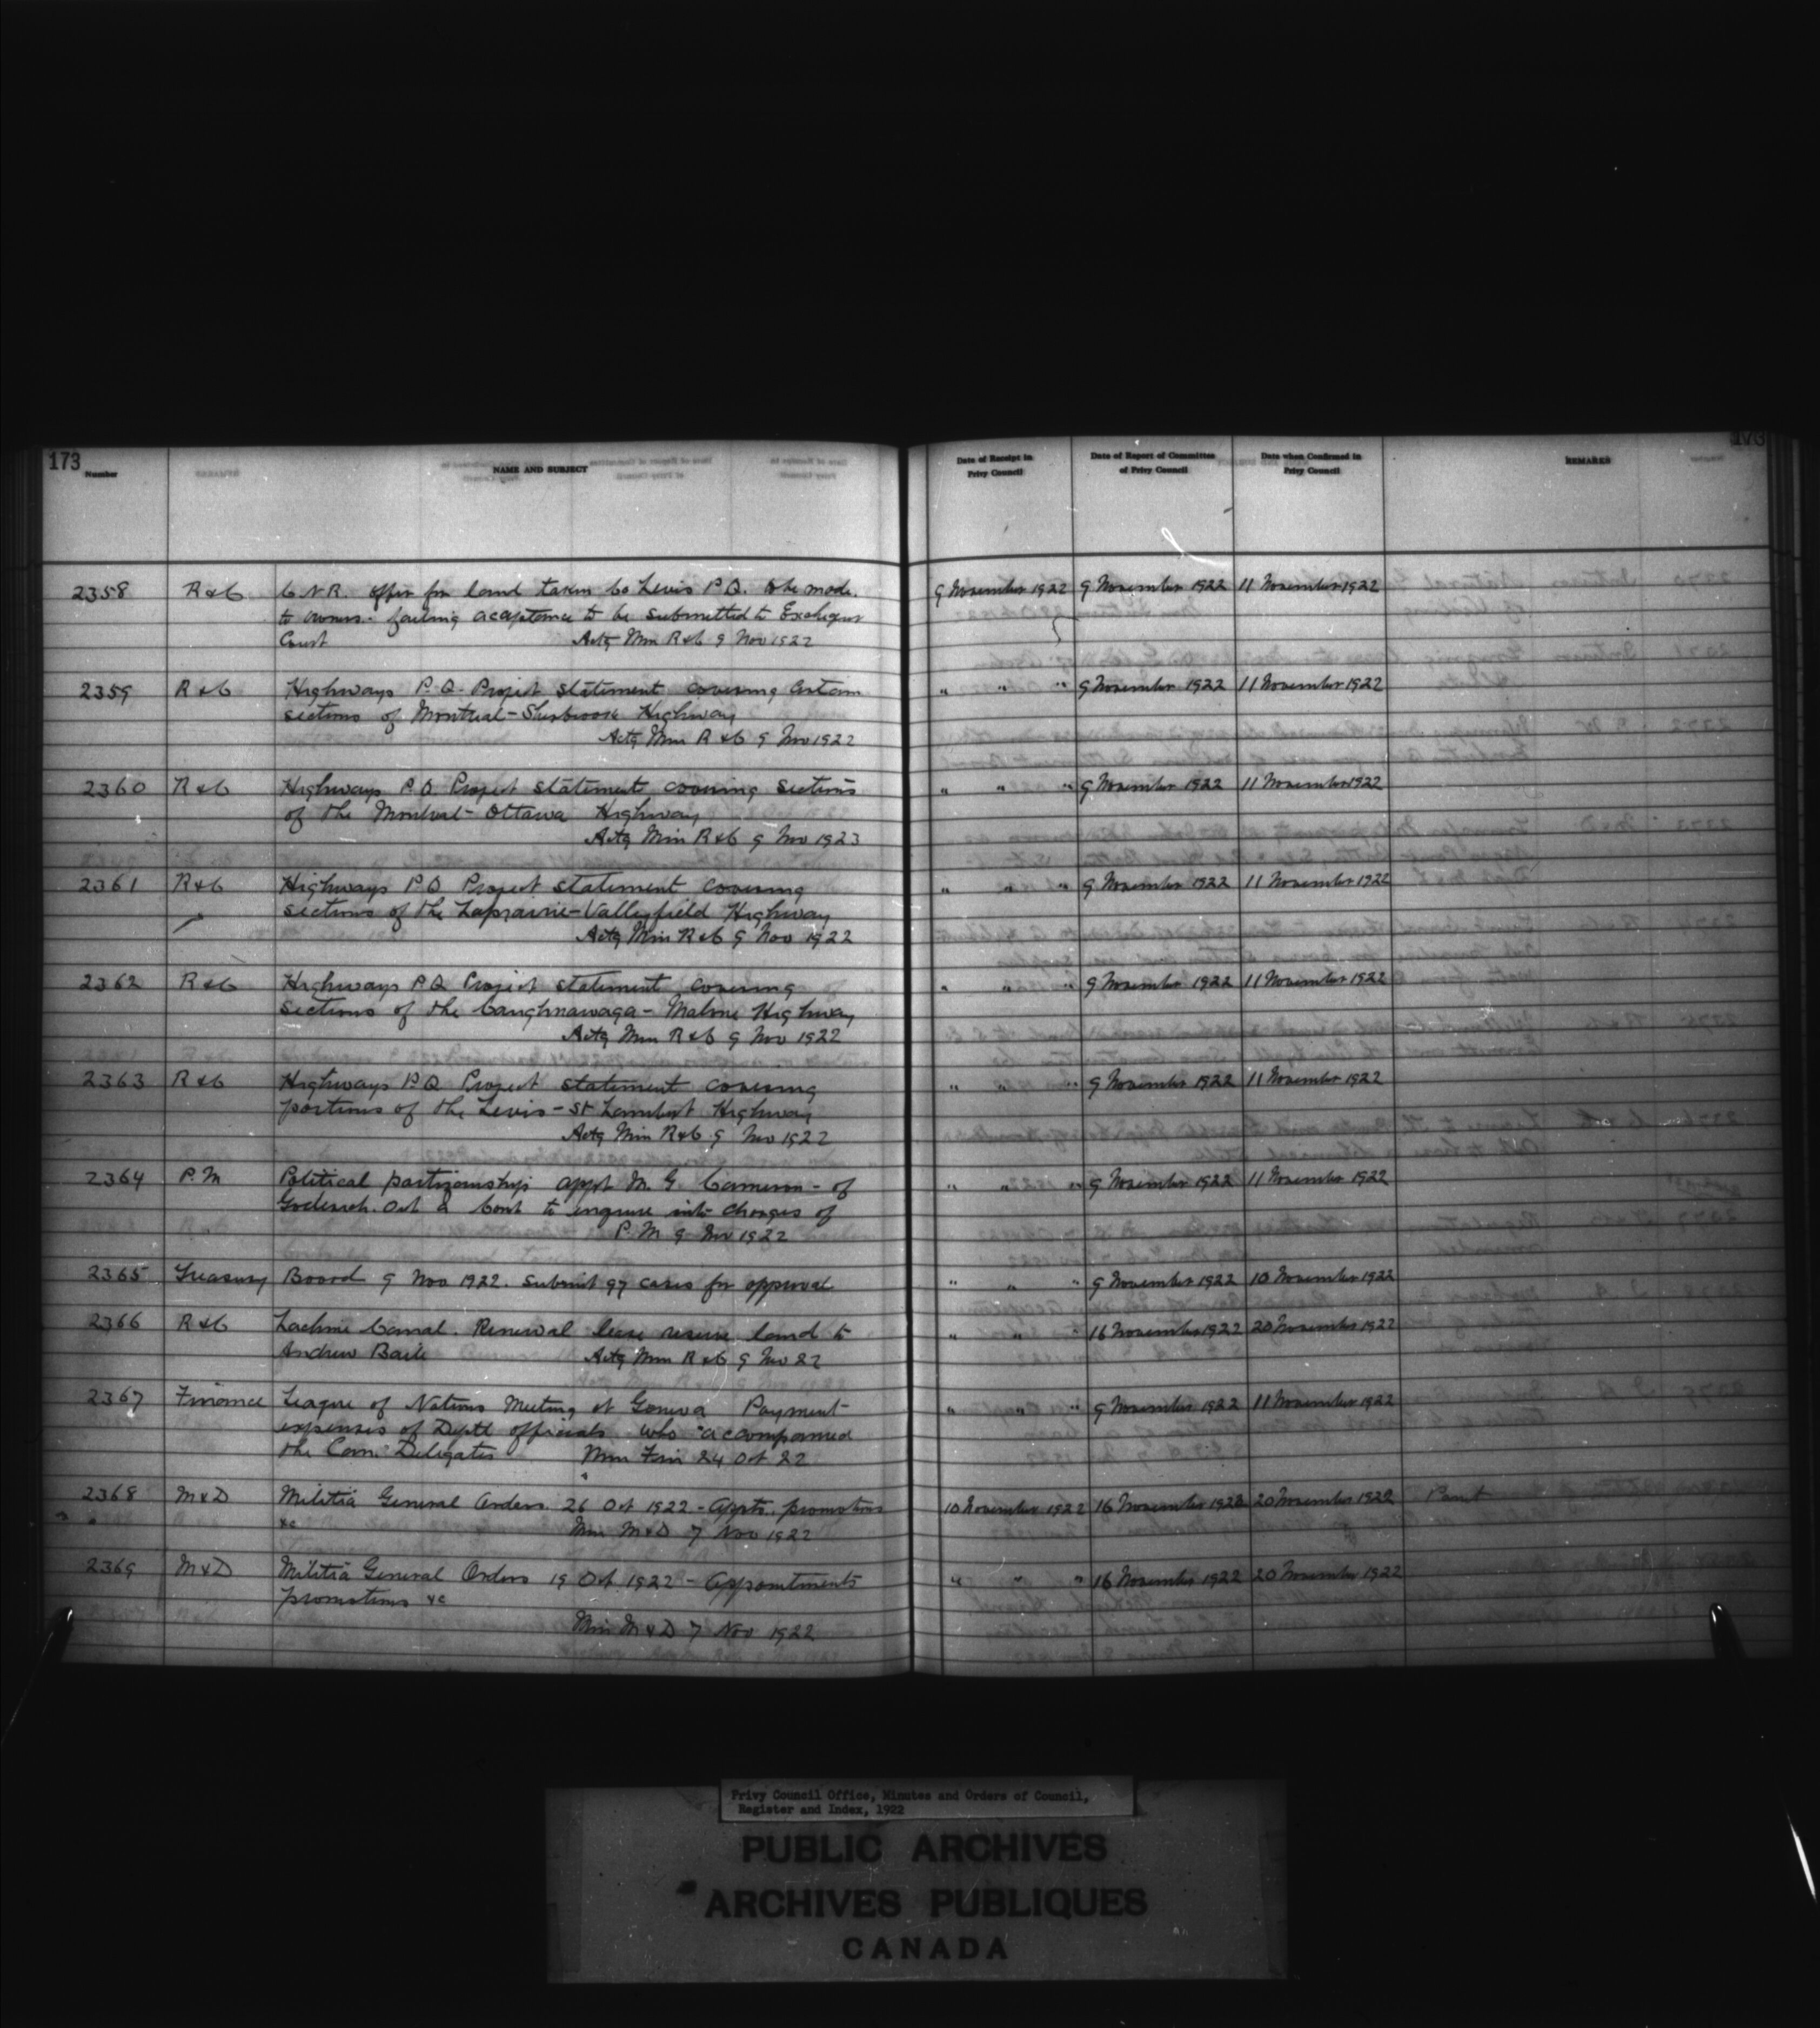 173
173
Number
NAME AND SUBJECT
Date of Receipt in Privy Council
Date of Report of Committee of Privy Council
Date when Confirmed in Privy Council
REMARKS
2358 R & C C.N.R. offer for land taken Co Levis P.Q. to be made 9 November 1922 9 November 1922 11 November 1922
to owners. failing acceptance to be submitted to Exchequer
Court Actg Min R & C 9 Nov 1922
2359 R & C Highways P.Q. Project statement covering certain " " " 9 November 1922 11 November 1922
sections of Montreal - Sherbrooke Highway
Actg Min R & C 9 Nov 1922
2360 R & C Highways P Q Project statement covering sections " " " 9 November 1922 11 November 1922
of the Montreal - Ottawa Highway
Actg Min R & C 9 Nov 1923
2361 R & C Highways P Q Project statement covering " " " 9 November 1922 11 November 1922
sections of the Laprairie - Valleyfield Highway
Actg Min R & C 9 Nov 1922
2362 R & C Highways P Q Project statement covering " " " 9 November 1922 11 November 1922
sections of the Caughnawaga - Malone Highway
Actg Min R & C 9 Nov 1922
2363 R & C Highways P Q Project statement covering " " " 9 November 1922 11 November 1922
portions of the Levis - St Lambert Highway
Actg Min R & C 9 Nov 1922
2364 P.M Political partizanship appt M. G Cameron - of " " " 9 November 1922 11 November 1922
Goderich. Ont a Comt to enquire into charges of
P.M 9 Nov 1922
2365 Treasury Board 9 Nov 1922. Submit 97 cases for approval " " " 9 November 1922 10 November 1922
2366 R & C Lachine Canal. Renewal lease reserve land to " " " 16 November 1922 20 November 1922
Andrew Baile Actg Min R & C 9 Nov 22
2367 Finance League of Nations Meeting at Geneva Payment " " " 9 November 1922 11 November 1922
expenses of Deptl officials who accompanied
the Can: Delegates Min Fin 24 Oct 22
2368 M & D Militia General Orders 26 Oct 1922 - Appts. promotions 10 November 1922 16 November 1922 20 November 1922
&c Min M & D 7 Nov 1922
2369 M & D Militia General Orders 19 Oct. 1922 - Appointments " " " 16 November 1922 20 November 1922
promotions &c
Min M & D 7 Nov 1922
Privy Council Office, Minutes and Orders of Council,
Register and Index, 1922
PUBLIC ARCHIVES
ARCHIVES PUBLIQUES
CANADA